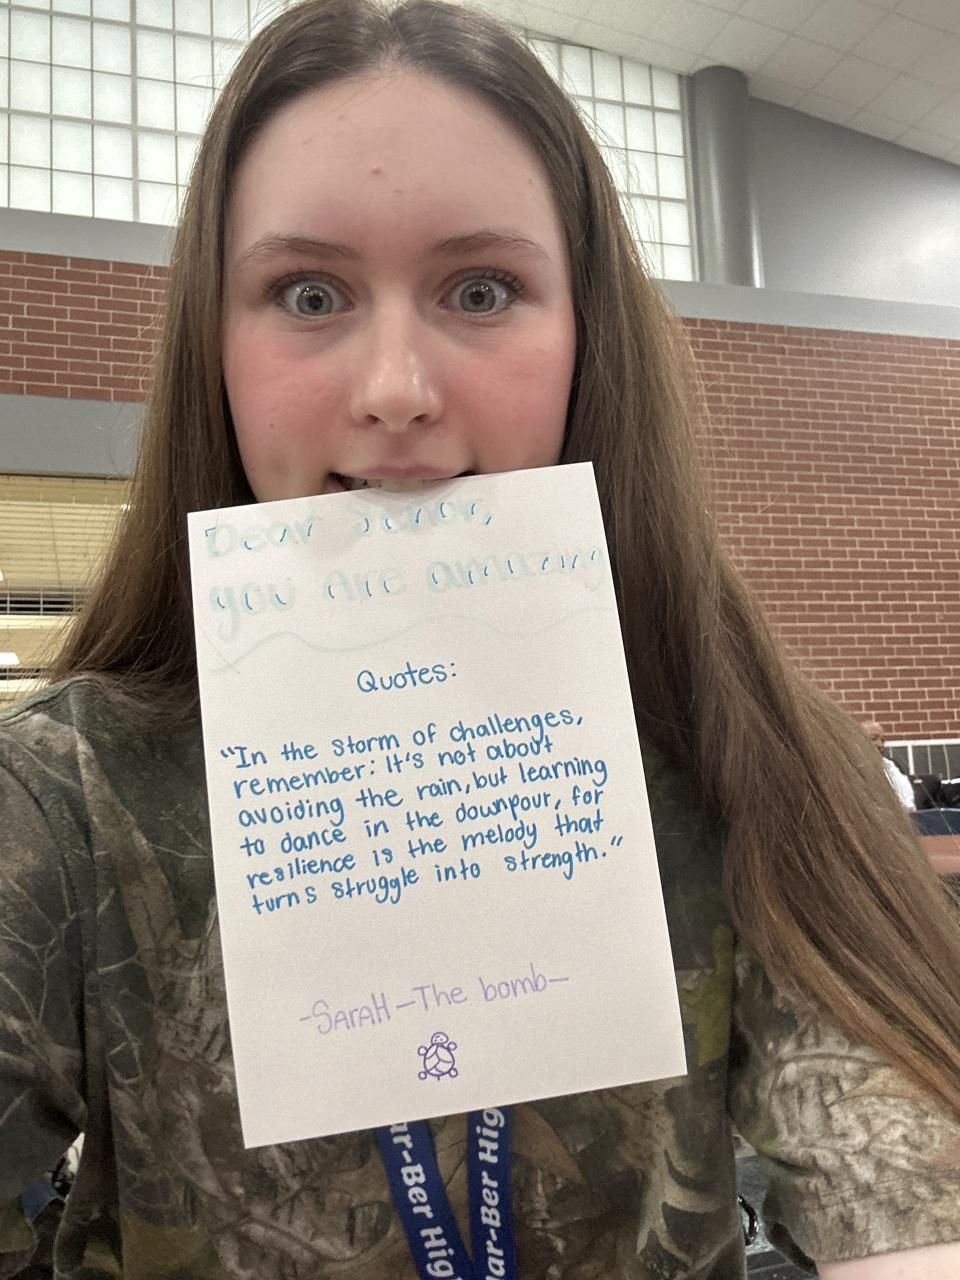 Dear Senior,
you are amazing
Quotes:
"In the storm of challenges,
remember: It's not about
avoiding the rain, but learning
to dance in the downpour, for
resilience is the melody that
turns struggle into strength."
-SaraH-The bomb-
ar-Ber Hig
ar-Ber Hig